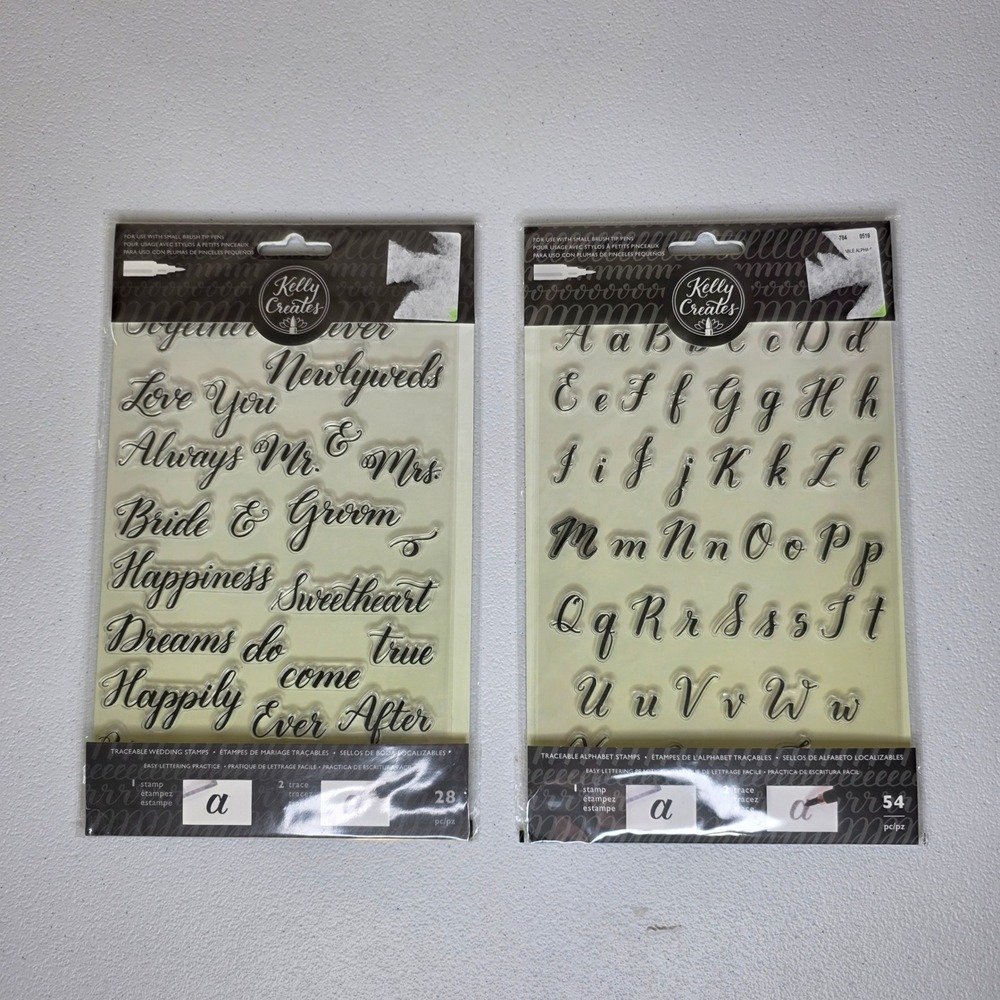 FOR USE WITH SMALL BRUSH TIP PENS
POUR USAGE AVEC STYLOS À PETITS PINCEAUX
PARA USO CON PLUMAS DE PINCELES PEQUEÑOS
Kelly
Creates
Together
Newlyweds
Love You
Always Mr. & Mrs.
Bride & Groom
Happiness
Sweetheart
Dreams do come true
Happily
Ever After
TRACEABLE WEDDING STAMPS • ÉTAMPES DE MARIAGE TRAÇABLES • SELLOS DE BODA LOCALIZABLES
EASY LETTERING PRACTICE • PRATIQUE DE LETTRAGE FACILE • PRÁCTICA DE ESCRITURA FÁCIL
1 stamp
étampez
estampe
a
2 trace
tracez
trace
a
28
pc/pz
FOR USE WITH SMALL BRUSH TIP PENS
POUR USAGE AVEC STYLOS À PETITS PINCEAUX
PARA USO CON PLUMAS DE PINCELES PEQUEÑOS
Kelly
Creates
784 0018
A a B b C c D d
E e F f G g H h
I i J j K k L l
M m N n O o P p
Q q R r S s s T t
U u V v W w
TRACEABLE ALPHABET STAMPS • ÉTAMPES DE L'ALPHABET TRAÇABLES • SELLOS DE ALFABETO LOCALIZABLES
EASY LETTERING PRACTICE • PRATIQUE DE LETTRAGE FACILE • PRÁCTICA DE ESCRITURA FÁCIL
1 stamp
étampez
estampe
a
2 trace
tracez
trace
a
54
pc/pz